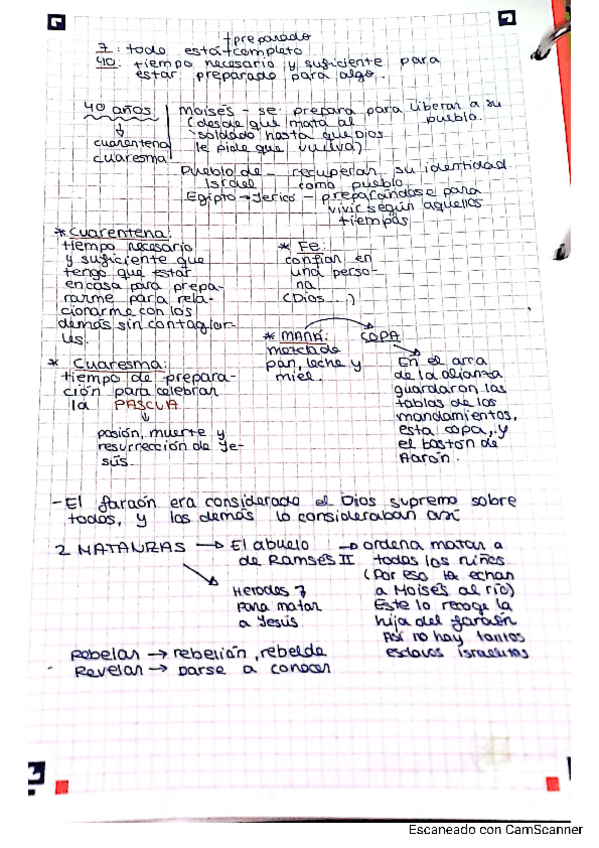 +preparado
7: todo está+completo
40: tiempo necesario y suficiente para
estar preparado para algo.
40 años
↓
cuarentena
cuaresma
Moisés - se prepara para liberar a su
pueblo.
(desde que mata al
soldado hasta que Dios
le pide que vuelva)
Pueblo de - recuperan su identidad
Israel como pueblo
Egipto→Jericó - preparándose para
vivir según aquellos
tiempos
*Cuarentena:
tiempo necesario
y suficiente que
tengo que estar
en casa para prepa-
rarme para rela-
cionarme con los
demás sin contagiar-
* Fe:
confiar en
una perso-
na.
(Dios...)
* MANÁ: COPA
mezcla de
pan, leche y
miel.
En el arca
de la alianza
guardaron las
tablas de los
mandamientos,
esta copa, y
el bastón de
Aarón.
* Cuaresma:
tiempo de prepara-
ción para celebrar
la PASCUA
↓
pasión, muerte y
resurrección de Je-
sús.
- El faraón era considerado el Dios supremo sobre
todos, y los demás lo consideraban así
2 MATANZAS → El abuelo → ordena matar a
de Ramsés II todos los niños
(Por eso echan
a Moisés al río)
Este lo recoge la
hija del faraón
Así no hay tantos
esclavos israelitas
Herodes
para matar
a Jesús
Rebelar → rebelión, rebelde
Revelar → Darse a conocer
Escaneado con CamScanner